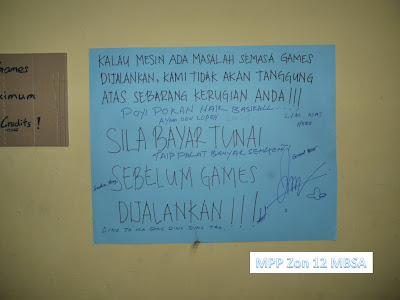 Games
ximum
Credits !
KALAU MESIN ADA MASALAH SEMASA GAMES
DIJALANKAN, KAMI TIDAK AKAN TANGGUNG
ATAS SEBARANG KERUGIAN ANDA!!!
POYI POKAN NAIK BASIKAL...
LIM WAS
HERE
SILA BAYAR TUNAI
SEBELUM GAMES
DIJALANKAN!!!
MPP Zon 12 MBSA